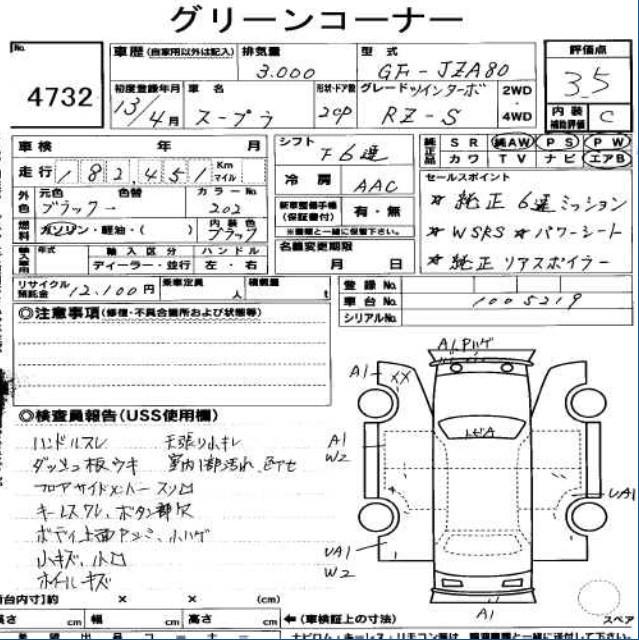 グリーンコーナー
No.
4732
車歴(自家用以外は記入)
排気量
3.000
型式
GF-JZA80
評価点
3.5
初度登録年月
13/4月
車名
スープラ
形状・ドア数
2cp
グレード ツインターボ
RZ-S
2WD
・
4WD
内装
補助評価
C
車検 年 月
シフト
F6速
純正品
SR 純AW PS PW
カワ TV ナビ エアB
走行 182,451 Km マイル
冷房
AAC
セールスポイント
☆ 純正6速ミッション
☆ WSRS ☆ パワーシート
☆ 純正リアスポイラー
外色
元色 色替
ブラック
カラーNo.
202
新車整備手帳
(保証書付)
有・無
※書類と一緒に保管下さい。
燃料
ガソリン・軽油・( )
内装色
ブラック
名義変更期限
月 日
輸入車用
年式
輸入区分
ディーラー・並行
ハンドル
左・右
リサイクル
預託金
12,100円
乗車定員
人
積載量
t
登録No.
車台No.
1005219
シリアルNo.
◎注意事項(修復・不具合箇所および状態等)
◎検査員報告(USS使用欄)
ハンドルスレ 天張り小キレ
ダッシュ板ウキ 室内1部汚れ、色アセ
キーレスワレ、ボタン部欠
小キズ、小凹
ホイールキズ
A1.Pハゲ
A1
XX
A1
W2
UA1
UA1
W2
A1
荷台内寸) × × (cm)
長さ cm 幅 cm 高さ cm
←(車検証上の寸法)
スペア